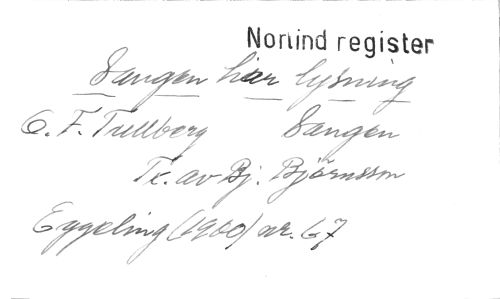 Norlind register
Sangen har lysning
O. F. Tullberg Sangen
Tx. av Bj. Björnsson
Eggeling (1960) nr. 67